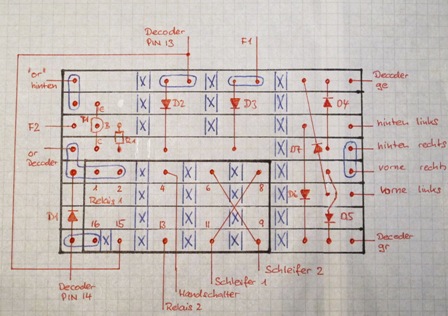 Decoder
PIN 13
F1
"or"
hinten
Decoder
ge
D2
D3
D4
E
T1
B
C
R1
F2
hinten links
or
Decoder
D7
hinten rechts
vorne rechts
1
2
4
6
8
Relais 1
D6
vorne links
D1
D5
16
15
13
11
9
Decoder
gr
Decoder
PIN 14
Schleifer 2
Schleifer 1
Handschalter
Relais 2